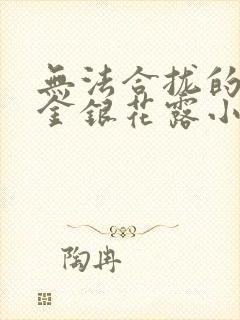 無法合拢的
金銀花露小
陶冉